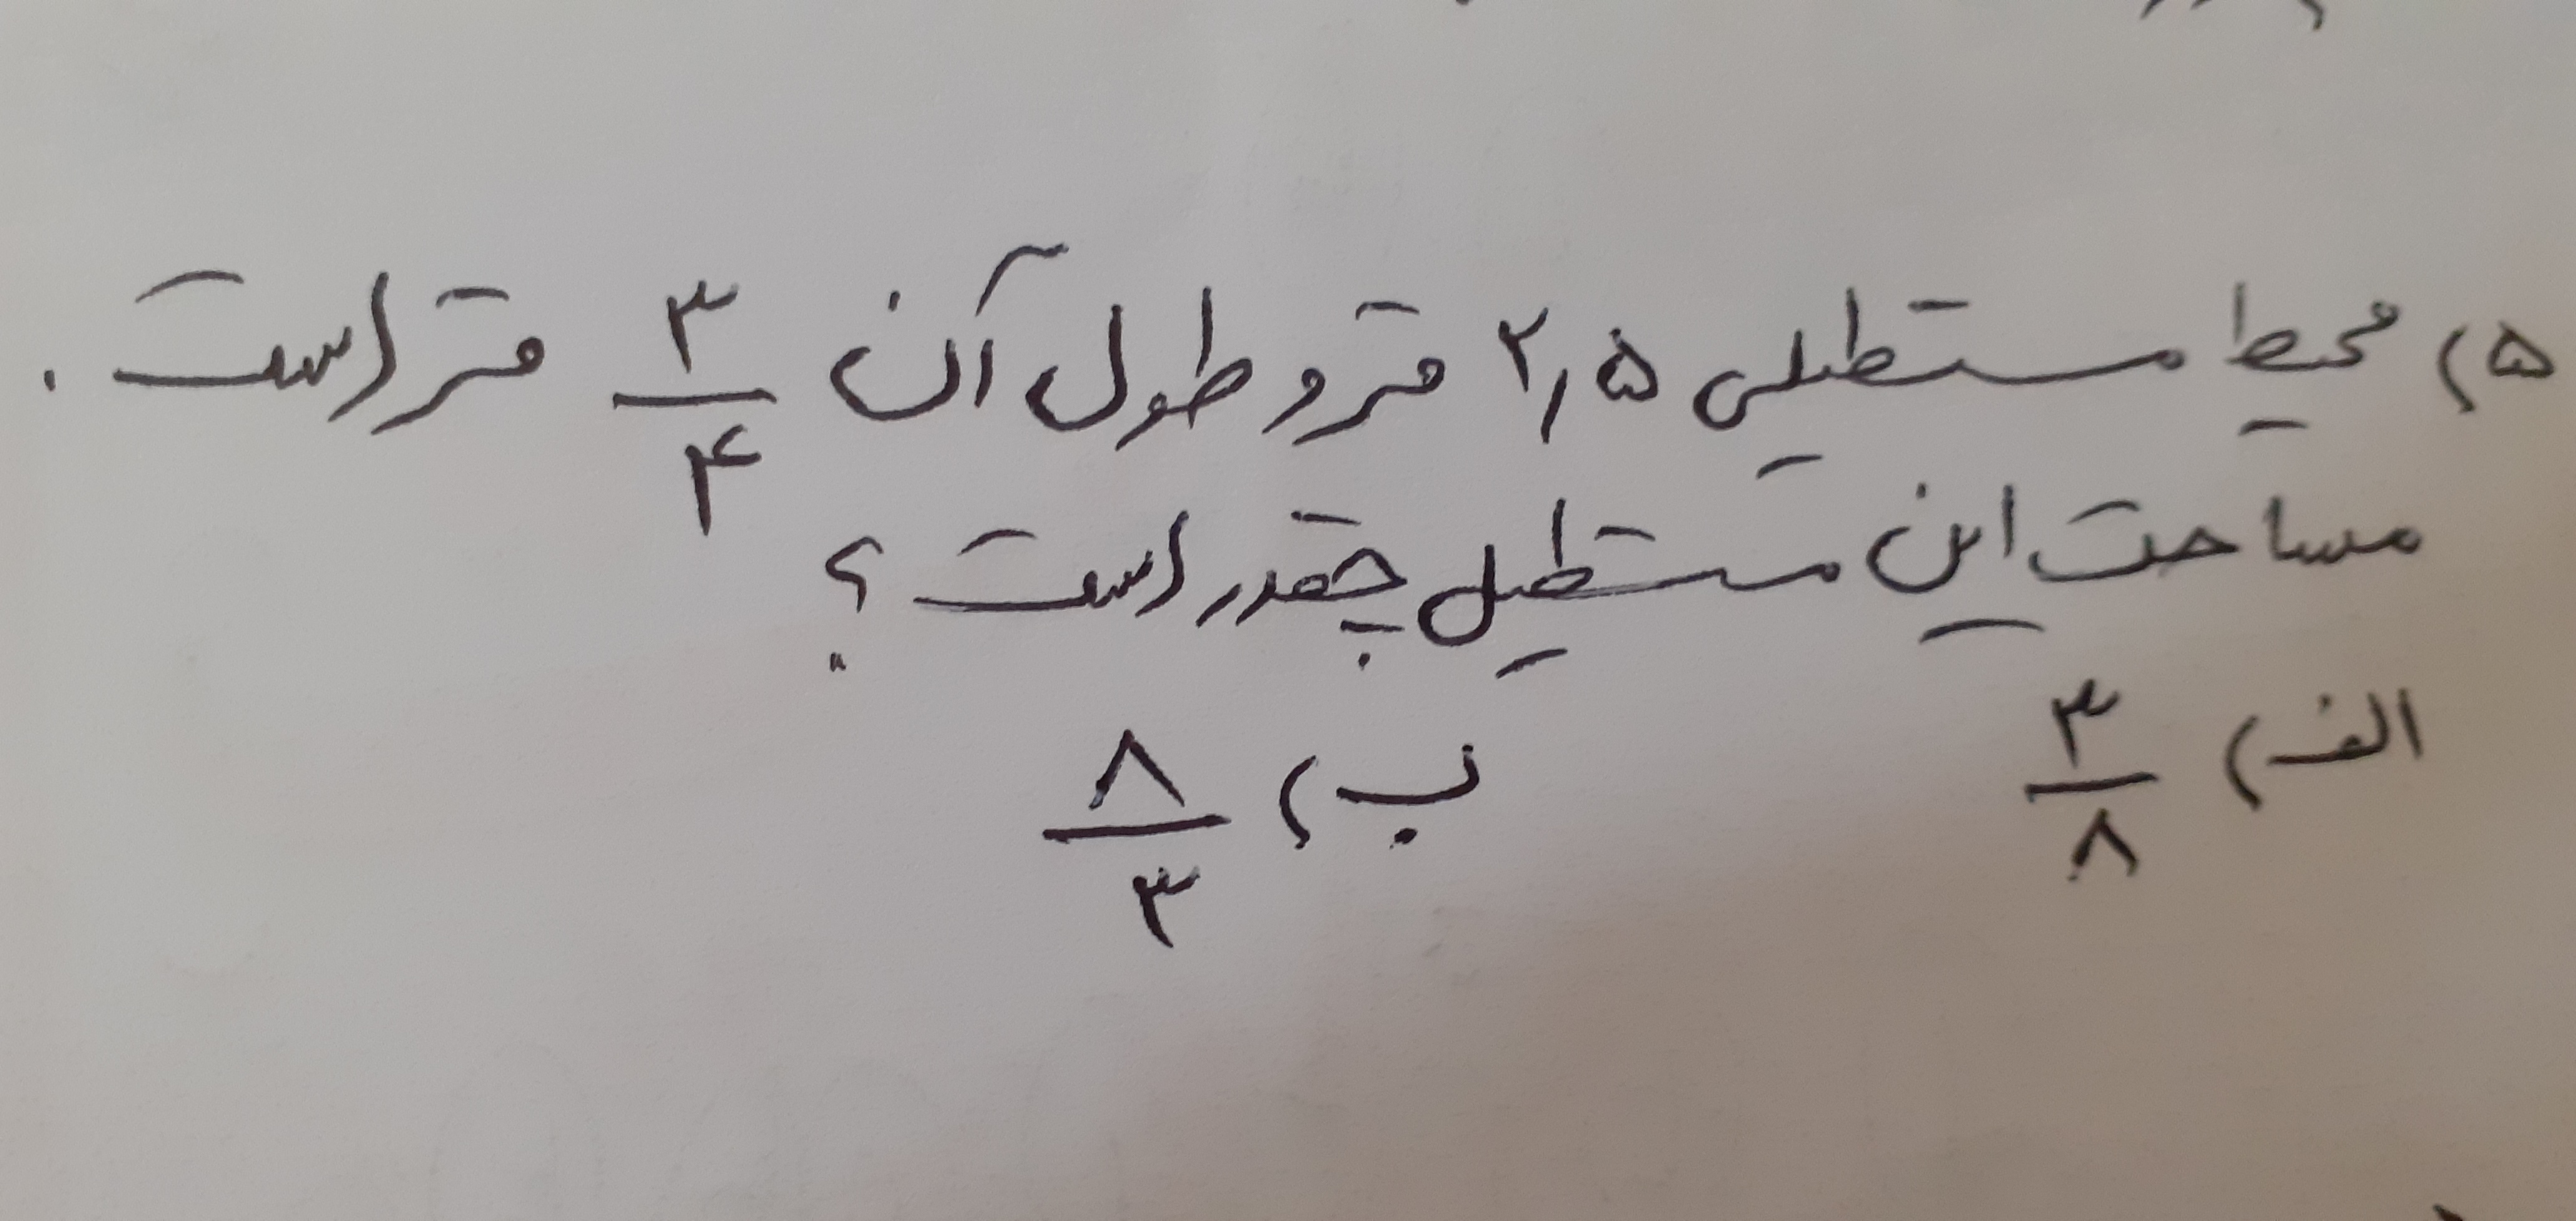 ۵) محیط مستطیلی ۲٫۵ متر و طول آن ۳/۴ متر است.
مساحت این مستطیل چقدر است؟
الف) ۳/۸ ب) ۸/۳